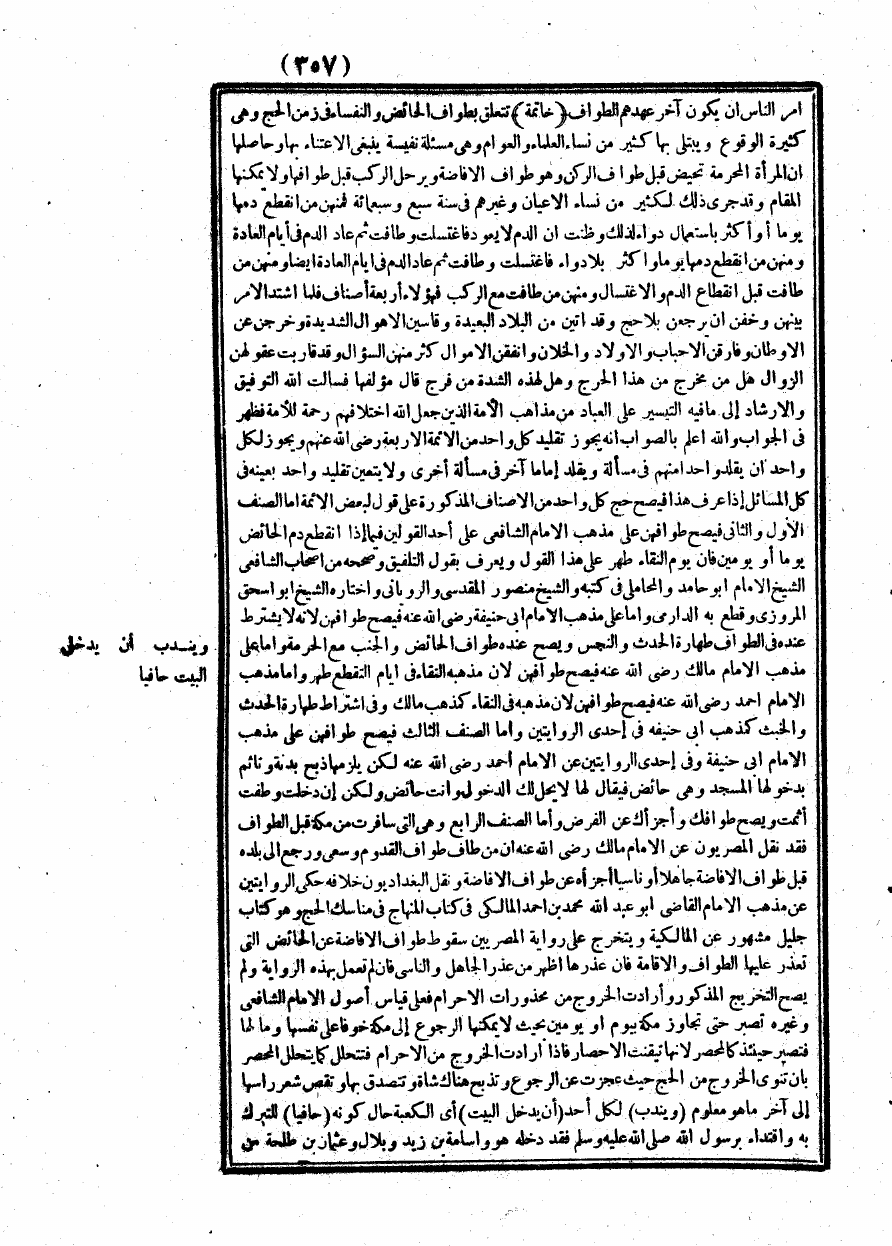 (٣٥٧)
امر الناس ان يكون آخر عهدهم الطواف (خاتمة) تتعلق بطواف الحائض والنفساء فى زمن الحج وهى
كثيرة الوقوع ويبتلى بها كثير من نساء العلماء والعوام وهى مسئلة نفيسة ينبغى الاعتناء بها وحاصلها
ان المرأة المحرمة تحيض قبل طواف الركن وهو طواف الافاضة ويرحل الركب قبل طوافها ولا يمكنها
المقام وقد جرى ذلك لكثير من نساء الاعيان وغيرهم فى سنة سبع وسبعمائة فمنهن من انقطع دمها
يوما أو أكثر باستعمال دواء لذلك وظنت ان الدم لا يعود فاغتسلت وطافت ثم عاد الدم فى أيام العادة
ومنهن من انقطع دمها يوما واكثر بلا دواء فاغتسلت وطافت ثم عاد الدم فى ايام العادة ايضا ومنهن من
طافت قبل انقطاع الدم والاغتسال ومنهن من طافت مع الركب فهؤلاء أربعة أصناف فلما اشتد الامر
بينهن وخفن ان يرجعن بلا حج وقد اتين من البلاد البعيدة وقاسين الاهوال الشديدة وخرجن عن
الاوطان وفارقن الاحباب والاولاد والخلان وانفقن الاموال كثر منهن السؤال وقد قاربت عقولهن
الزوال هل من مخرج من هذا الحرج وهل لهذه الشدة من فرج قال مؤلفها فسالت الله التوفيق
والارشاد إلى مافيه التيسير على العباد من مذاهب الأمة الذين جعل الله اختلافهم رحمة للأمة فظهر
فى الجواب والله اعلم بالصواب انه يجوز تقليد كل واحد من الائمة الاربعة رضى الله عنهم ويجوز لكل
واحد ان يقلد واحدا منهم فى مسألة ويقلد إماما آخر فى مسألة أخرى ولا يتعين تقليد واحد بعينه فى
كل المسائل إذا عرف هذا فيصح حج كل واحد من الاصناف المذكورة على قول لبعض الائمة اما الصنف
الأول والثانى فيصح طوافهن على مذهب الامام الشافعى على أحد القولين فيما إذا انقطع دم الحائض
يوما أو يومين فان يوم النقاء طهر على هذا القول ويعرف بقول التلفيق وصححه من اصحاب الشافعى
الشيخ الامام ابو حامد والمحاملى فى كتبه والشيخ منصور المقدسى والرويانى واختاره الشيخ ابو اسحق
المروزى وقطع به الدارمى واما على مذهب الامام ابى حنيفة رضى الله عنه فيصح طوافهن لانه لا يشترط
عنده فى الطواف طهارة الحدث والنجس ويصح عنده طواف الحائض والجنب مع الحرمة واما على
مذهب الامام مالك رضى الله عنه فيصح طوافهن لان مذهبه النقاء فى ايام التقطع طهر واما مذهب
الامام احمد رضى الله عنه فيصح طوافهن لان مذهبه فى النقاء كمذهب مالك وفى اشتراط طهارة الحدث
والخبث كمذهب ابى حنيفه فى إحدى الروايتين واما الصنف الثالث فيصح طوافهن على مذهب
الامام ابى حنيفة وفى إحدى الروايتين عن الامام أحمد رضى الله عنه لكن يلزمها ذبح بدنة وتائم
بدخولها المسجد وهى حائض فيقال لها لا يحل لك الدخول وانت حائض ولكن إن دخلت وطفت
أثمت ويصح طوافك وأجزأك عن الفرض وأما الصنف الرابع وهى التى سافرت من مكة قبل الطواف
فقد نقل المصريون عن الامام مالك رضى الله عنه ان من طاف طواف القدوم وسعى ورجع الى بلده
قبل طواف الافاضة جاهلا أو ناسيا أجزأه عن طواف الافاضة ونقل البغداديون خلافه حكى الروايتين
عن مذهب الامام القاضى ابو عبد الله محمد بن احمد المالكى فى كتاب المنهاج فى مناسك الحج وهو كتاب
جليل مشهور عن المالكية ويتخرج على رواية المصريين سقوط طواف الافاضة عن الحائض التى
تعذر عليها الطواف والاقامة فان عذرها اظهر من عذر الجاهل والناسى فان لم تعمل بهذه الرواية ولم
يصح التخريج المذكور وأرادت الخروج من محذورات الاحرام فعلى قياس أصول الامام الشافعى
وغيره تصبر حتى تجاوز مكة بيوم او يومين بحيث لا يمكنها الرجوع إلى مكة خوفا على نفسها ومالها
فتصير حينئذ كالمحصر لانها تيقنت الاحصار فاذا ارادت الخروج من الاحرام فتتحلل كما يتحلل المحصر
بان تنوى الخروج من الحج حيث عجزت عن الرجوع وتذبح هناك شاة وتتصدق بها وتقص شعر راسها
إلى آخر ماهو معلوم (ويندب) لكل أحد (أن يدخل البيت) أى الكعبة حال كونه (حافيا) للتبرك
به واقتداء برسول الله صلى الله عليه وسلم فقد دخله هو واسامة بن زيد وبلال وعثمان بن طلحة من
ويندب أن يدخل
البيت حافيا